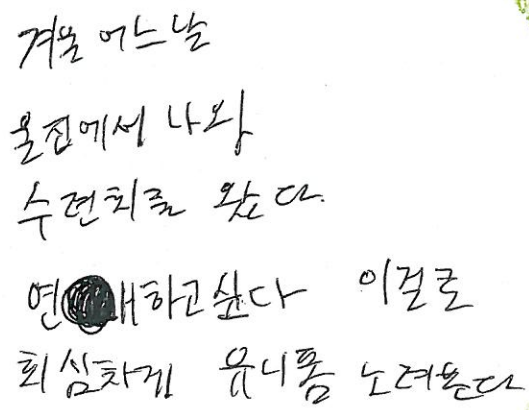 겨울 어느날
울진에서 나와
수련회를 왔다.
연애하고싶다 이걸로
회심차게 유니폼 노려본다